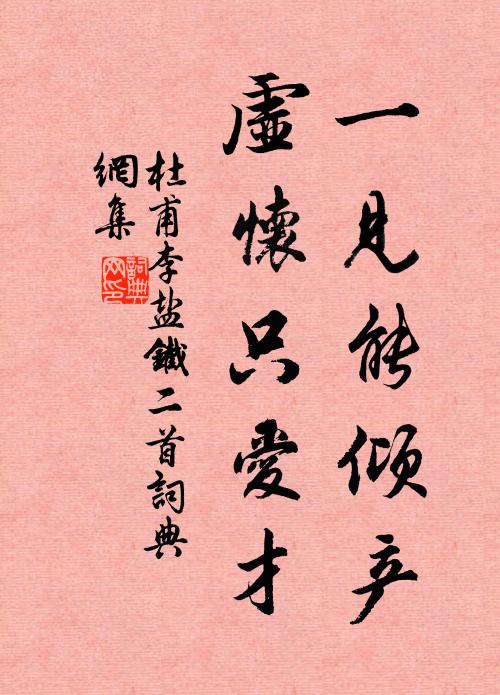 一見能傾产
虛懷只愛才
杜甫李盐鐵二首詞典
網集
詞典網印